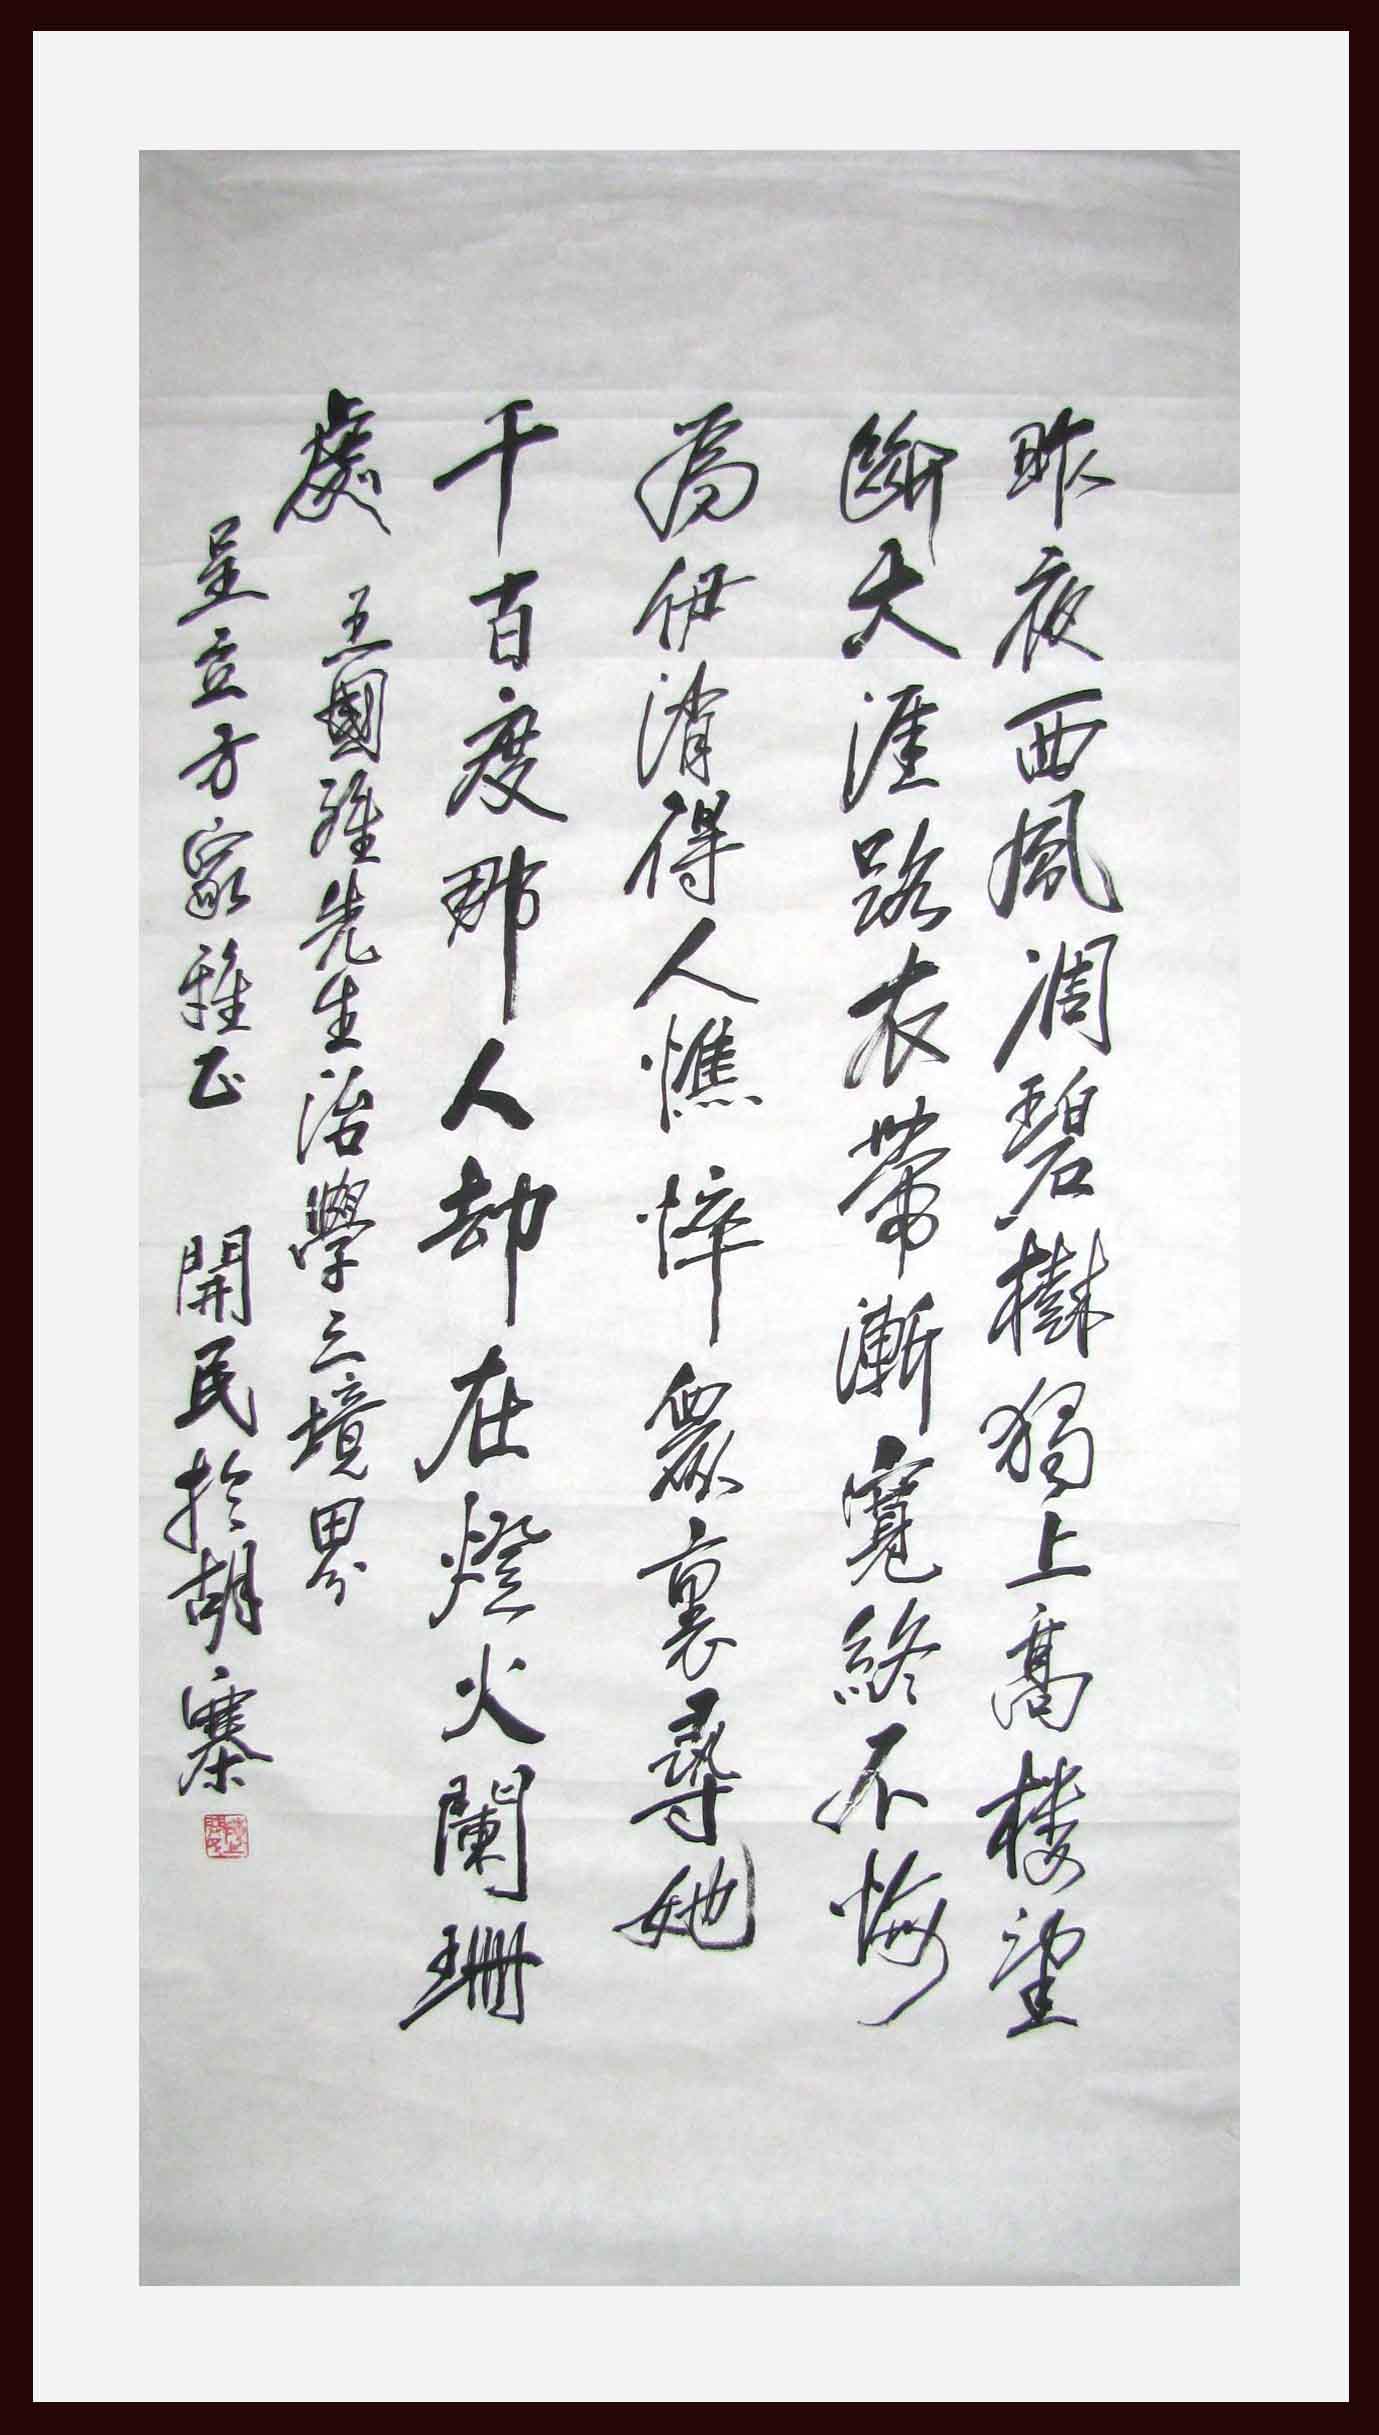 昨夜西風凋碧樹獨上高樓望
斷天涯路衣帶漸寬終不悔
為伊消得人憔悴眾裏尋她
千百度那人却在燈火闌珊
處 王國維先生治學三境界
呈立方家雅正 開民於胡寨